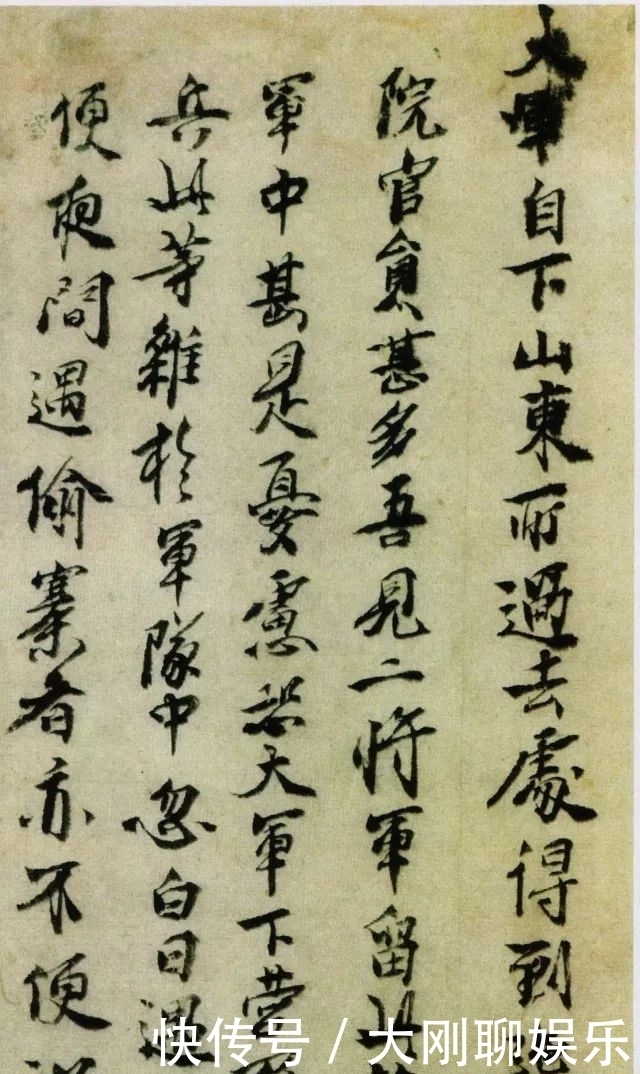 大軍自下山東所過去處得到
院官員甚多吾見二將軍留此
軍中甚是憂慮恐大軍下營
兵此等雜於軍隊中忽白日遇
便夜間遇偷寨者亦不便
快传号/大刚聊娱乐